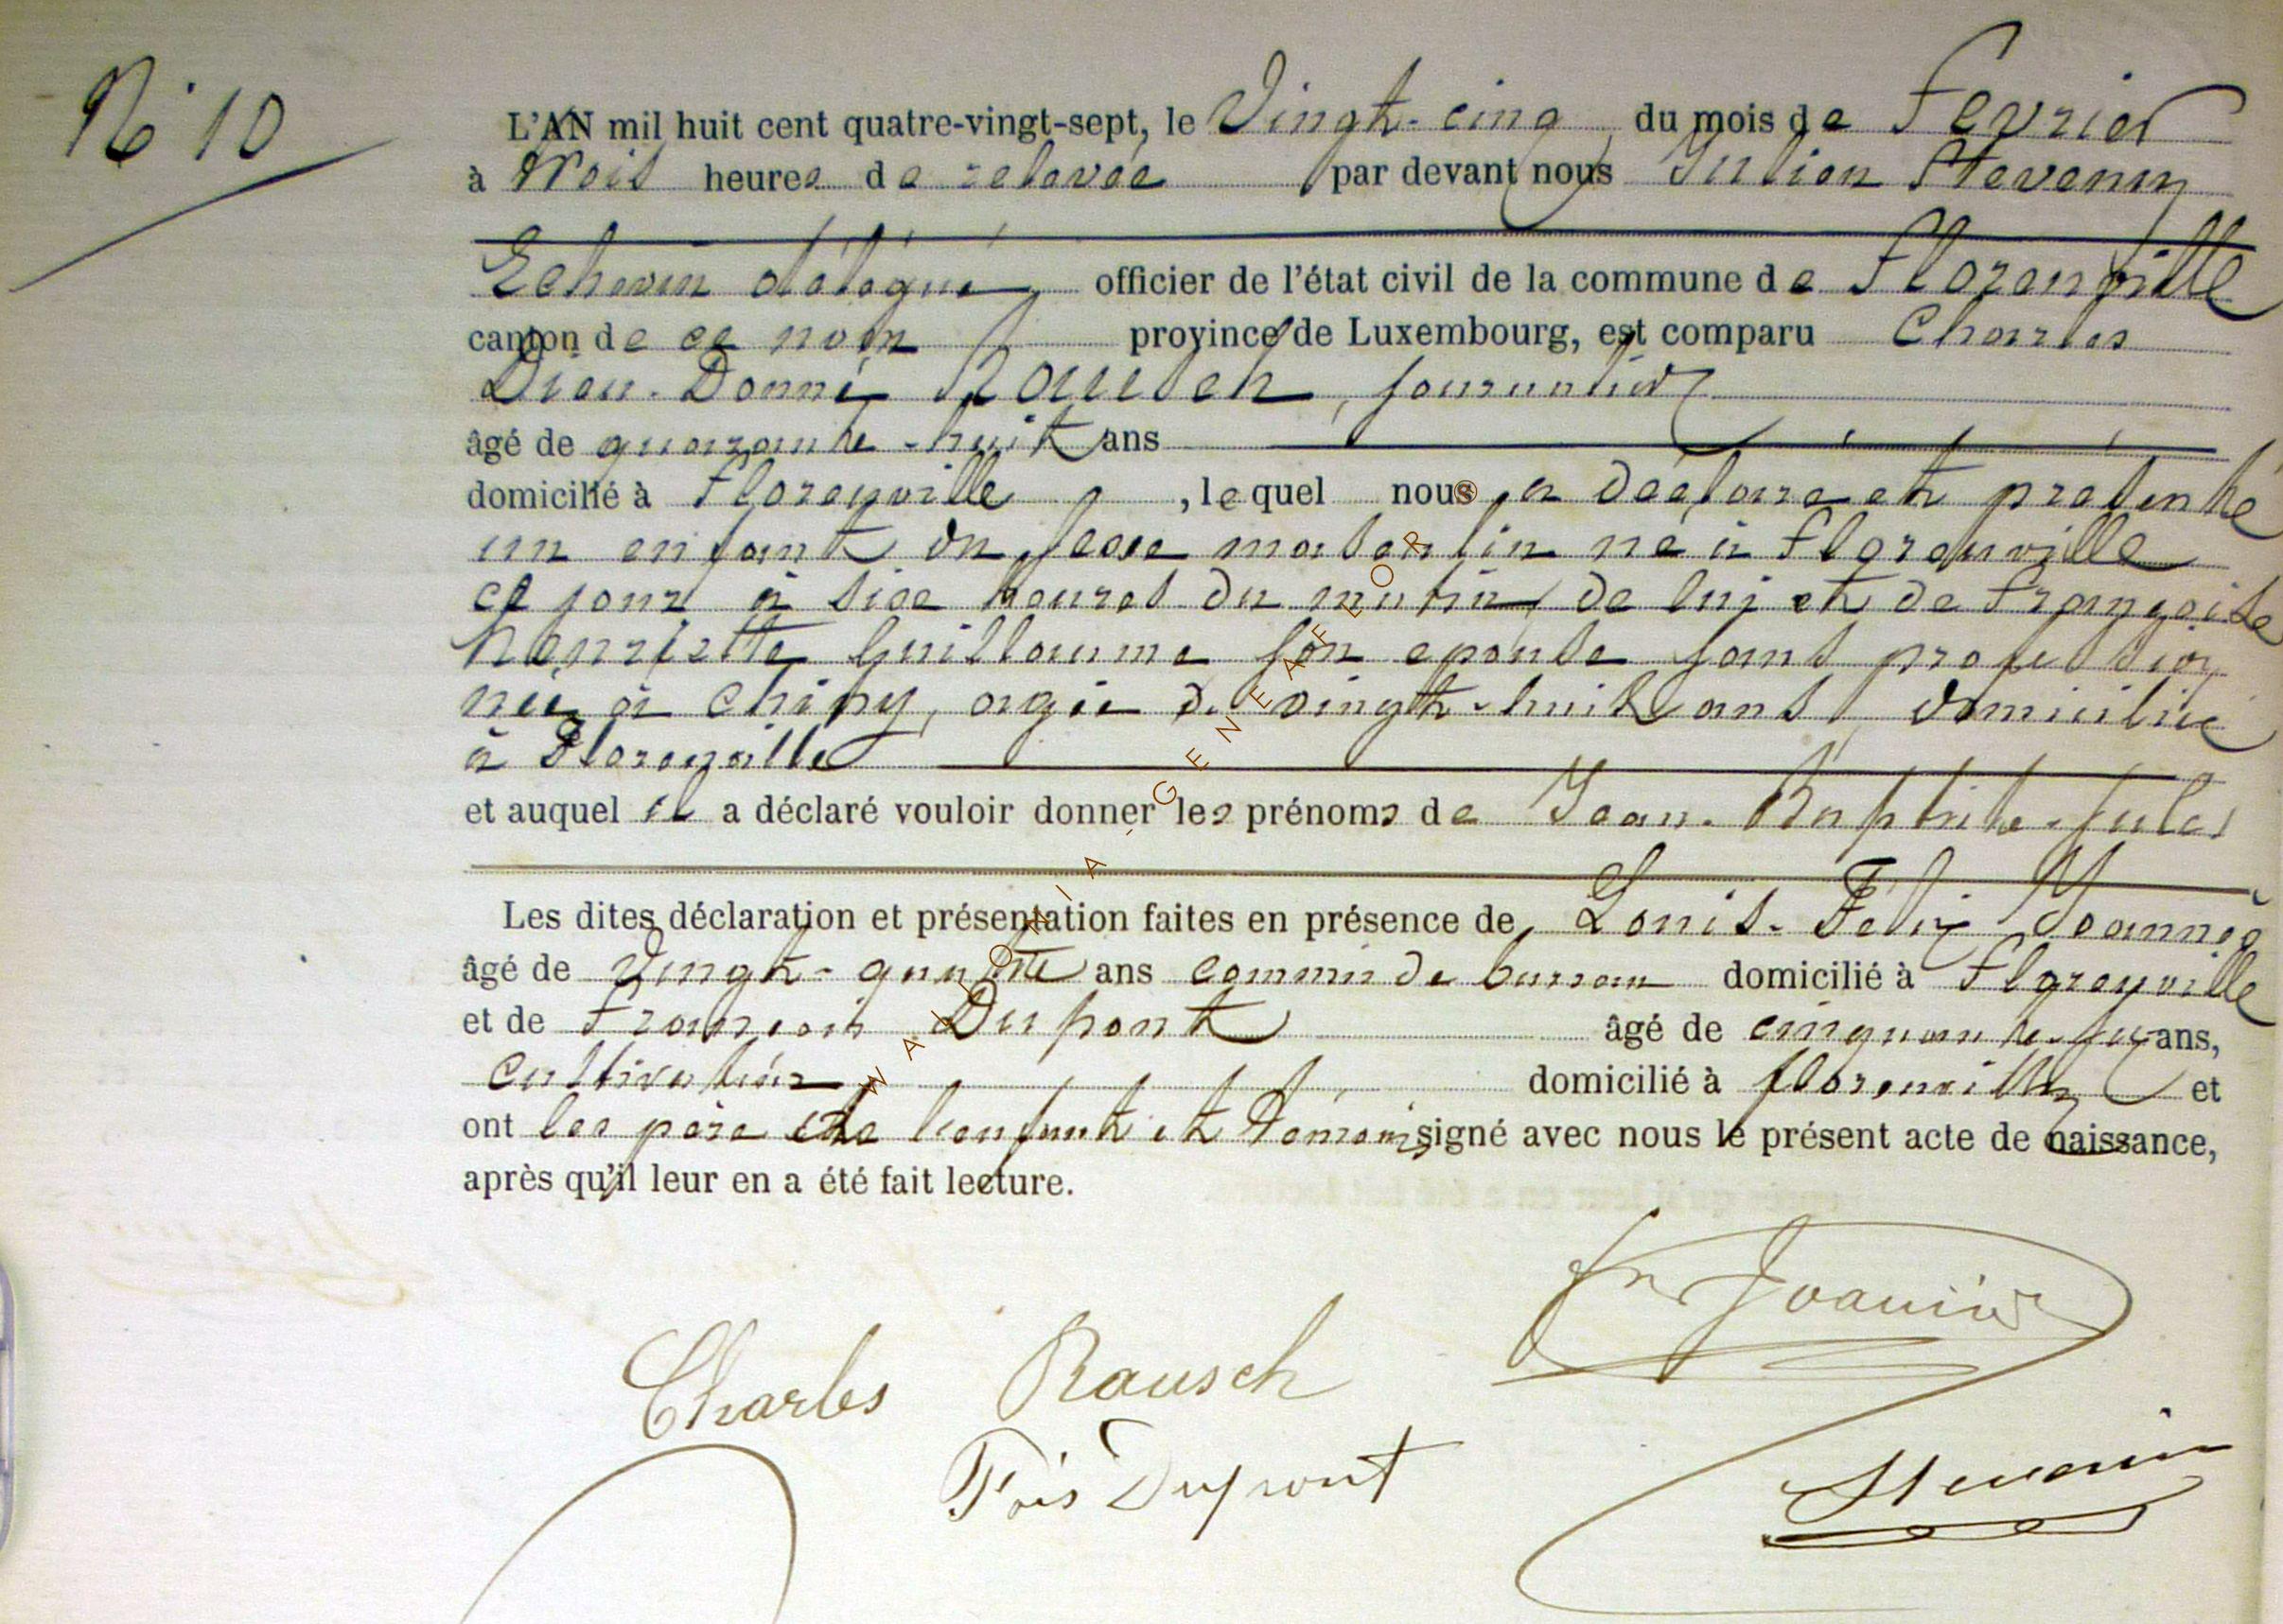 No 10
L'AN mil huit cent quatre-vingt-sept, le Vingt-cinq du mois de Février
à trois heures de relevée par devant nous Julien Stevenin
Echevin délégué officier de l'état civil de la commune de Florenville
canton de ce nom province de Luxembourg, est comparu Charles
Dieu-Donné Rausch, journalier
âgé de quarante-huit ans
domicilié à Florenville, lequel nous a déclaré et présenté
un enfant du sexe masculin né à Florenville
ce jour à six heures du matin de lui et de Françoise
Henriette Guillaume son épouse sans profession
née à Chiny, agée de vingt-huit ans, domiciliée
à Florenville
et auquel il a déclaré vouloir donner les prénoms de Jean-Baptiste-Jules
Les dites déclaration et présentation faites en présence de Louis-Félix
âgé de Vingt-quatre ans commis de bureau domicilié à Florenville
et de François Dupont âgé de ans,
cultivateur domicilié à florenville et
ont les père de l'enfant et témoins signé avec nous le présent acte de naissance,
après qu'il leur en a été fait lecture.
Charles Rausch
Fois Dupont
Stevenin
WALLONIA - GENEAFLOR ®